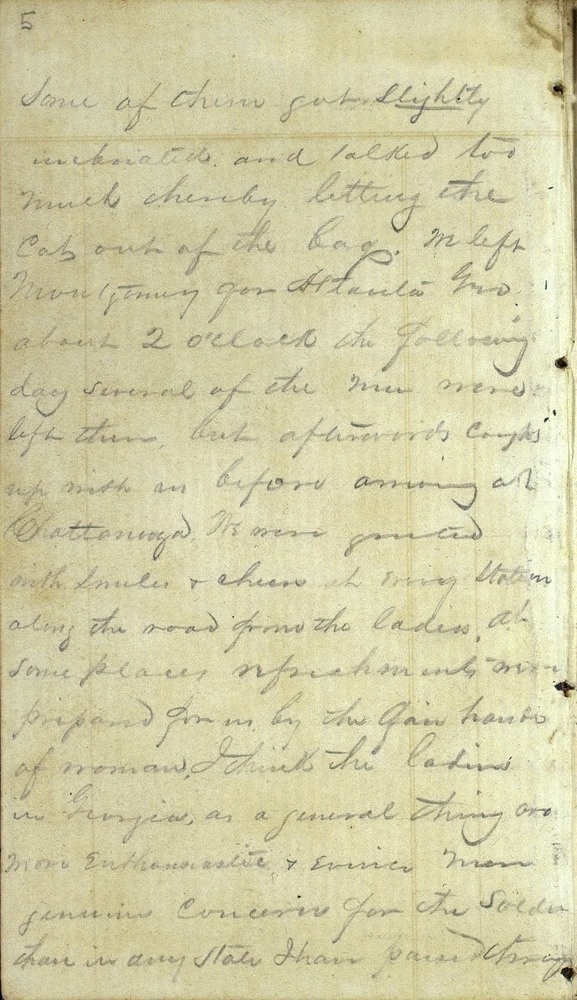 5
Some of them got slightly
inebriated and talked too
much thereby letting the
Cat out of the bag. We left
Montgomery for Atlanta Geo.
about 2 o'clock the following
day several of the men were
left there, but afterwords caught
up with us before arriving at
Chattanooga. We were greeted
with smiles & cheers at every Station
along the road from the ladies. At
some places refreshments were
prepared for us by the fair hands
of woman, I think the ladies
in Georgia, as a general thing are
more Enthousiastic & evince more
genuine concern for the Soldier
than in any State I have passed through